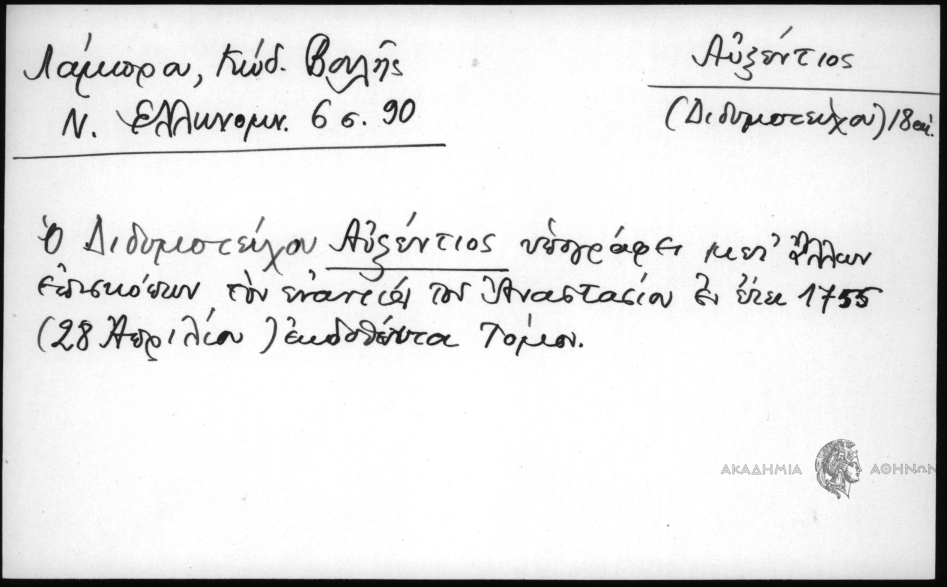 Λάμπρου, Κώδ. Βουλῆς
Ν. Ἑλληνομν. 6 σ. 90
Αὐξέντιος
(Διδυμοτείχου) 18 αἰ.
Ὁ Διδυμοτείχου Αὐξέντιος ὑπογράφει μετ' ἄλλων
ἐπισκόπων τὸν ἐναντίον τοῦ Ἀναστασίου ἐν ἔτει 1755
(28 Ἀπριλίου) ἐκδοθέντα Τόμον.
ΑΚΑΔΗΜΙΑ ΑΘΗΝΩΝ